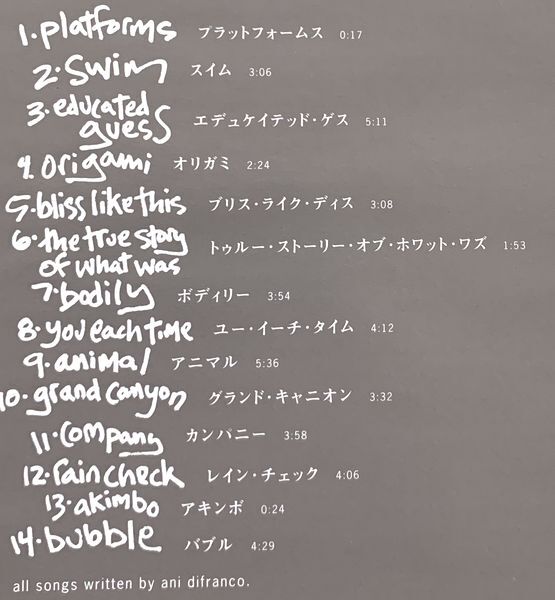 1. platforms プラットフォームス 0:17
2. swim スイム 3:06
3. educated
guess エデュケイテッド・ゲス 5:11
4. origami オリガミ 2:24
5. bliss like this ブリス・ライク・ディス 3:08
6. the true story
of what was トゥルー・ストーリー・オブ・ホワット・ワズ 1:53
7. bodily ボディリー 3:54
8. you each time ユー・イーチ・タイム 4:12
9. animal アニマル 5:36
10. grand canyon グランド・キャニオン 3:32
11. company カンパニー 3:58
12. rain check レイン・チェック 4:06
13. akimbo アキンボ 0:24
14. bubble バブル 4:29
all songs written by ani difranco.